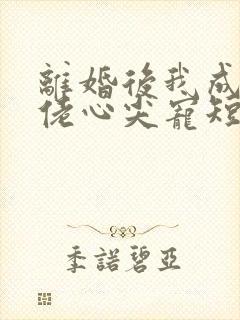 離婚後我成
佬心尖寵短
季諾碧亞